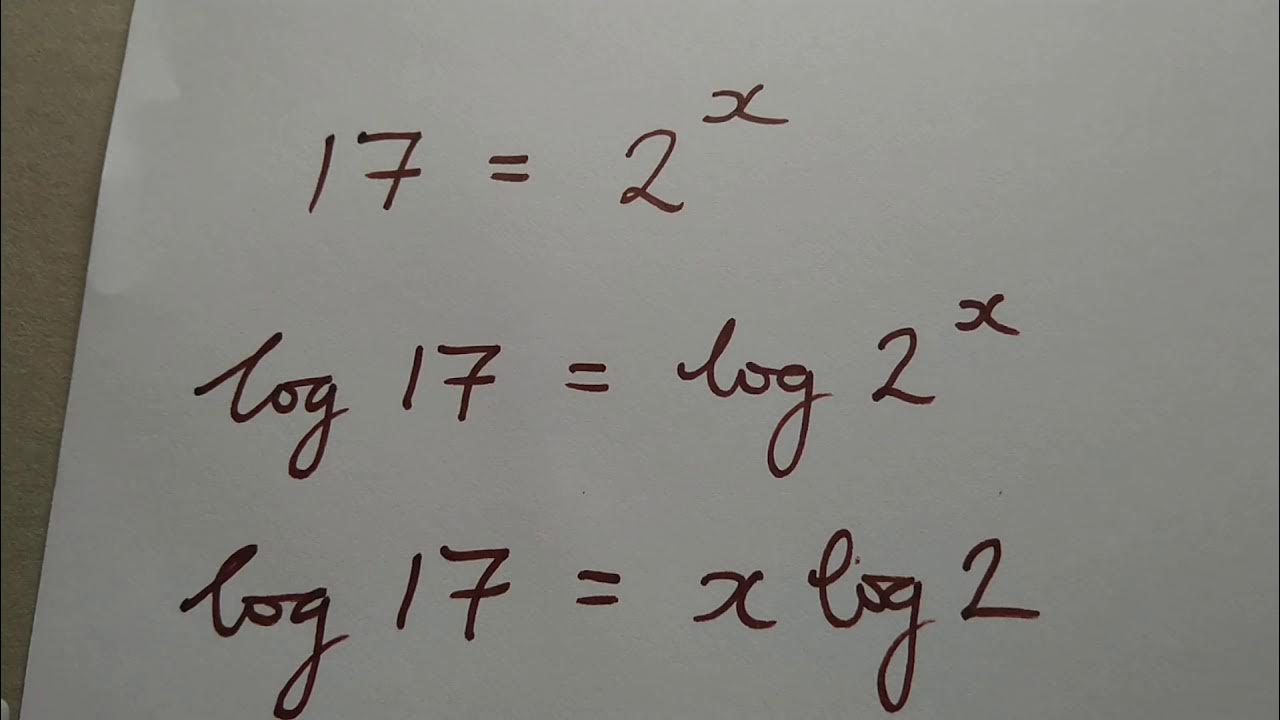 17 = 2ˣ
log 17 = log 2ˣ
log 17 = x log 2